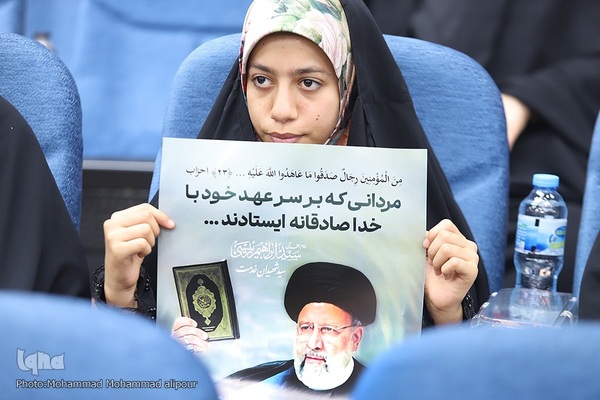 مِنَ الْمُؤْمِنِینَ رِجَالٌ صَدَقُوا مَا عَاهَدُوا اللَّهَ عَلَيْهِ ... ﴿۲۳﴾ احزاب
مردانی که بر سر عهد خود با
خدا صادقانه ایستادند ...
سید ابراهیم رئیسی
سید شهیدان خدمت
iqna
Photo:Mohammad Mohammad alipour